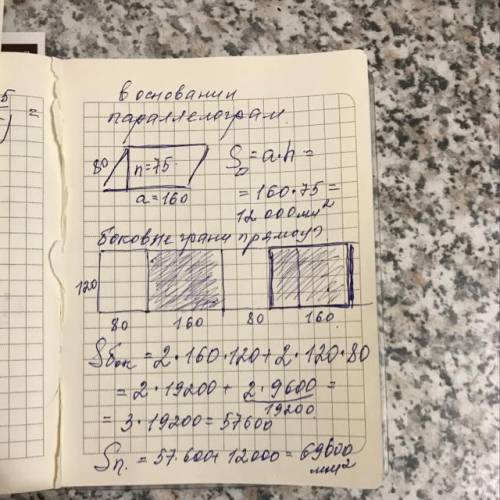 в основании
параллелограм.
80 h=75 a=160
S₀=a·h=
=160·75=
12 000 мм²
боковые грани прямоуг
120
80 160 80 160
Sбок = 2·160·120+2·120·80
= 2·19200 + 2·9600 =
19200
= 3·19200 = 57600
Sп. = 57.600+12000=69600
мм²
5
=